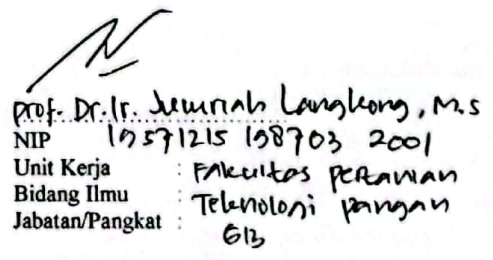 Prof. Dr. Ir. Jumriah Langkong, M.S
NIP 19571215 198703 2001
Unit Kerja : Fakultas Pertanian
Bidang Ilmu : Teknologi pangan
Jabatan/Pangkat : GB